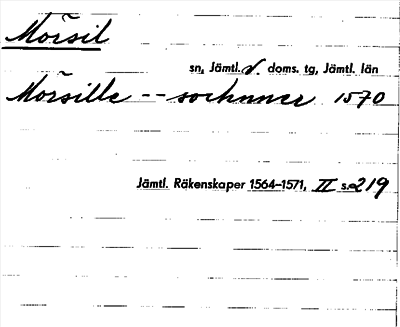 Mörsil
sn, Jämtl. v. doms. tg, Jämtl. län
Mörsille -- sochnner 1570
Jämtl. Räkenskaper 1564–1571, II s. 219